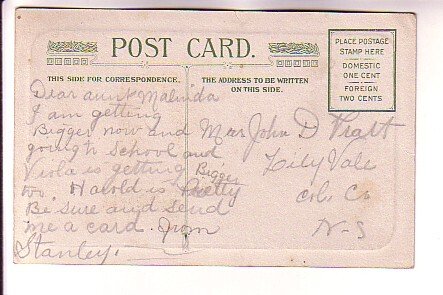 POST CARD.
THIS SIDE FOR CORRESPONDENCE.
THE ADDRESS TO BE WRITTEN
ON THIS SIDE.
PLACE POSTAGE
STAMP HERE
DOMESTIC
ONE CENT
FOREIGN
TWO CENTS
Dear aunt Malinda
I am getting
Bigger now and
going to School and
Viola is getting Bigger
too. Harold is Pretty
Be sure and send
me a card. from
Stanley.
Mrs John D Pratt
Lily Vale
Col. Co
N-S